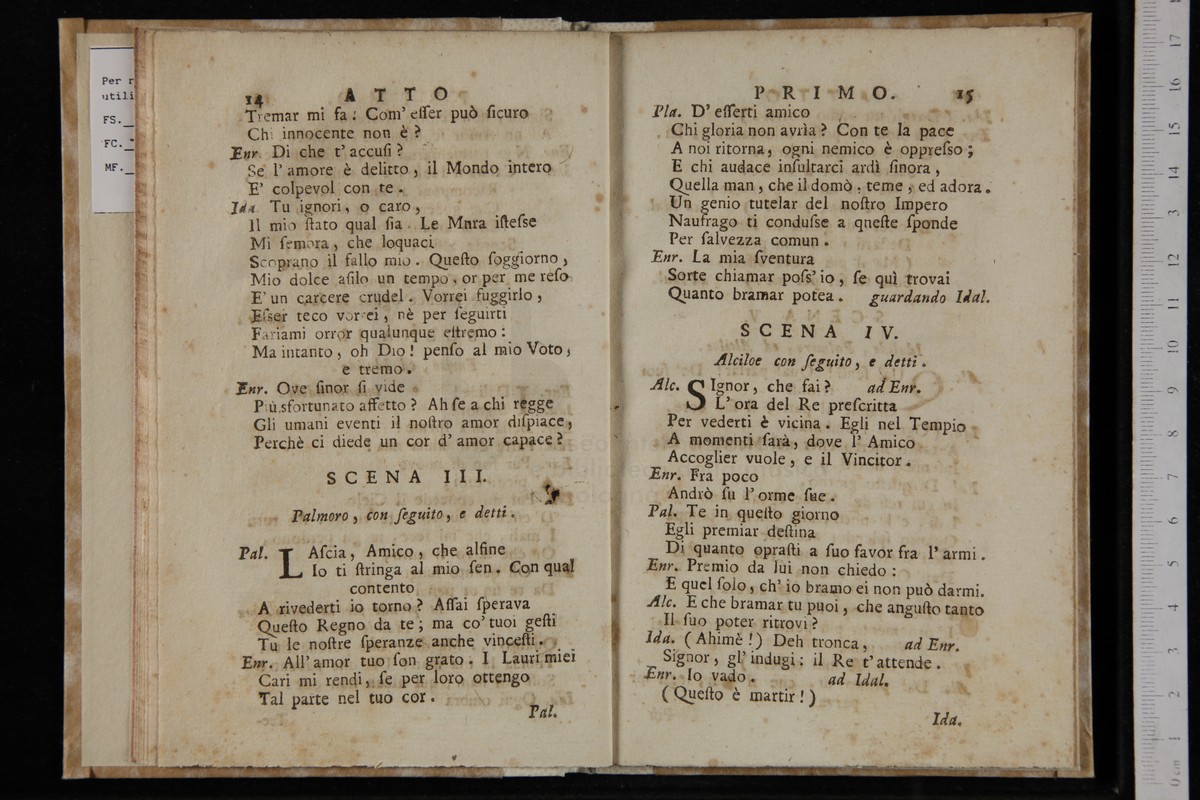 Per r
utili
FS._
FC._
MF._
14 ATTO
Tremar mi fa: Com' eſſer può ſicuro
Chi innocente non è ?
Enr. Di che t' accuſi ?
Se l' amore è delitto, il Mondo intero
E' colpevol con te.
Ida. Tu ignori, o caro,
Il mio ſtato qual ſia. Le Mnra iſteſse
Mi ſembra, che loquaci
Scoprano il fallo mio. Queſto ſoggiorno,
Mio dolce aſilo un tempo, or per me reſo
E' un carcere crudel. Vorrei fuggirlo,
Eſser teco vorrei, nè per ſeguirti
Fariami orror qualunque eſtremo:
Ma intanto, oh Dio! penſo al mio Voto,
e tremo.
Enr. Ove ſinor ſi vide
Più sfortunato affetto ? Ah ſe a chi regge
Gli umani eventi il noſtro amor diſpiace,
Perchè ci diede un cor d' amor capace ?
SCENA III.
Palmoro, con ſeguito, e detti.
Pal. LAſcia, Amico, che alfine
Io ti ſtringa al mio ſen. Con qual
contento
A rivederti io torno ? Aſſai ſperava
Queſto Regno da te; ma co' tuoi geſti
Tu le noſtre ſperanze anche vinceſti.
Enr. All' amor tuo ſon grato. I Lauri miei
Cari mi rendi, ſe per loro ottengo
Tal parte nel tuo cor.
Pal.
PRIMO. 15
Pla. D' eſſerti amico
Chi gloria non avrìa ? Con te la pace
A noi ritorna, ogni nemico è oppreſso;
E chi audace inſultarci ardì ſinora,
Quella man, che il domò, teme, ed adora.
Un genio tutelar del noſtro Impero
Naufrago ti conduſse a qneſte ſponde
Per ſalvezza comun.
Enr. La mia ſventura
Sorte chiamar poſs' io, ſe quì trovai
Quanto bramar potea. guardando Idal.
SCENA IV.
Alciloe con ſeguito, e detti.
Alc. SIgnor, che fai ? ad Enr.
L' ora del Re preſcritta
Per vederti è vicina. Egli nel Tempio
A momenti ſarà, dove l' Amico
Accoglier vuole, e il Vincitor.
Enr. Fra poco
Andrò ſu l' orme ſue.
Pal. Te in queſto giorno
Egli premiar deſtina
Di quanto opraſti a ſuo favor fra l' armi.
Enr. Premio da lui non chiedo:
E quel ſolo, ch' io bramo ei non può darmi.
Alc. E che bramar tu puoi, che anguſto tanto
Il ſuo poter ritrovi ?
Ida. (Ahimè!) Deh tronca, ad Enr.
Signor, gl' indugi: il Re t' attende.
Enr. Io vado. ad Idal.
(Queſto è martir!)
Ida.